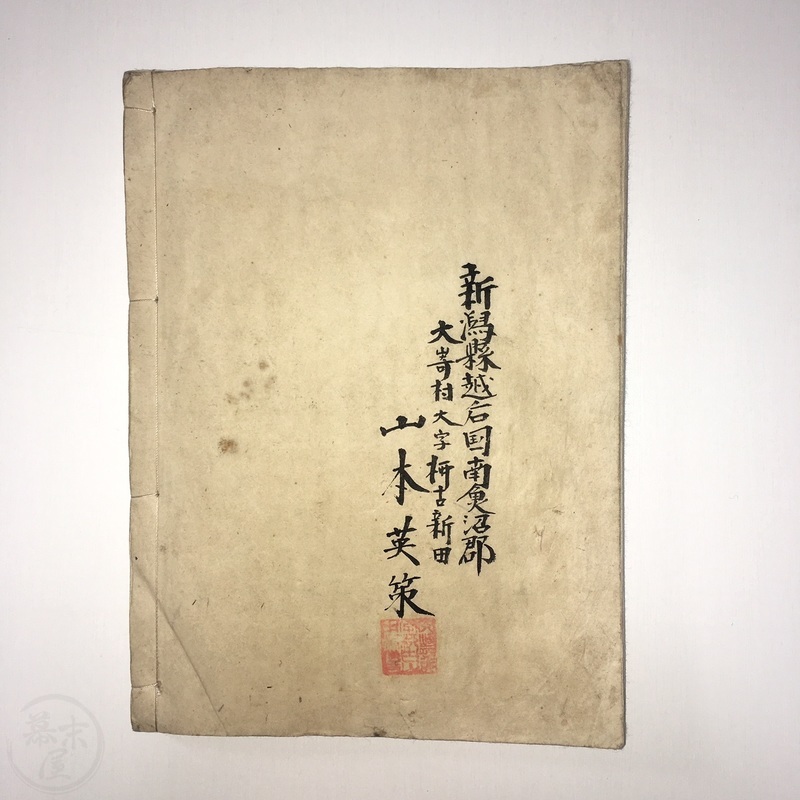 新潟縣越后国南魚沼郡
大嵜村大字栃古新田
山本英策
幕末屋